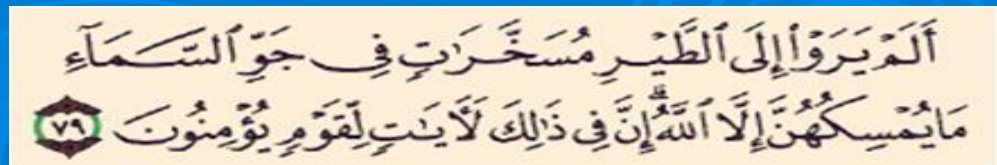 أَلَمْ يَرَوْا۟ إِلَى ٱلطَّيْرِ مُسَخَّرَٰتٍ فِى جَوِّ ٱلسَّمَآءِ
مَا يُمْسِكُهُنَّ إِلَّا ٱللَّهُ ۗ إِنَّ فِى ذَٰلِكَ لَـَٔايَٰتٍ لِّقَوْمٍ يُؤْمِنُونَ ٧٩